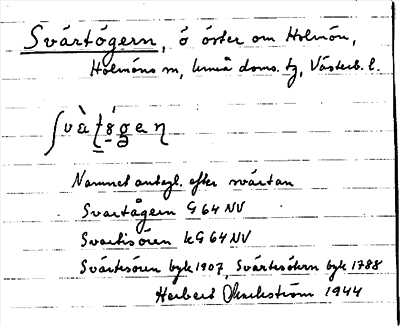 Svärtögern, ö öster om Holmön,
Holmöns sn, Umeå doms. tg, Västerb. l.
Namnet antagl. efter svärtan
Svartågern G 64 NV
Svartisören kG 64 NV
Svärtesören byk 1907, Svärtesökern byk 1788
Herbert 1944